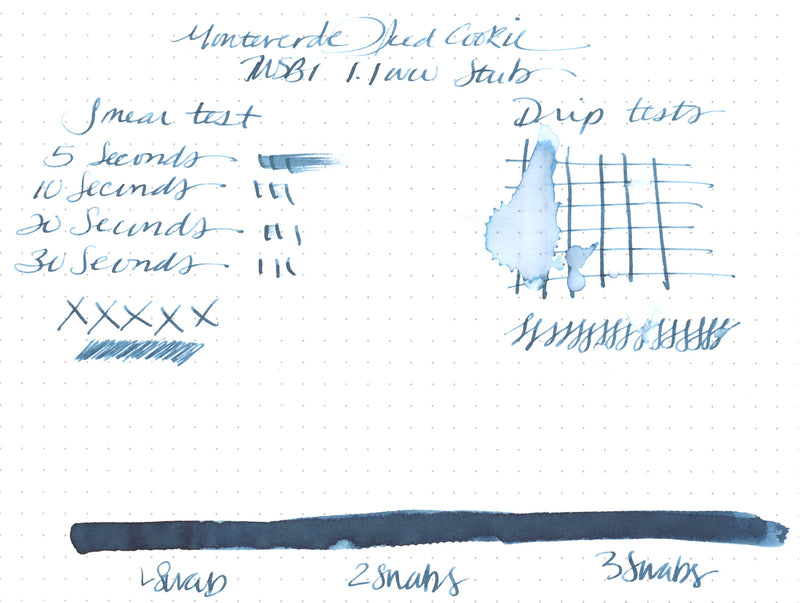 Monteverde Iced Cookie
TWSBI 1.1mm Stub
Smear test
5 Seconds
10 Seconds
20 Seconds
30 Seconds
Drip tests
1 Swab
2 Swabs
3 Swabs